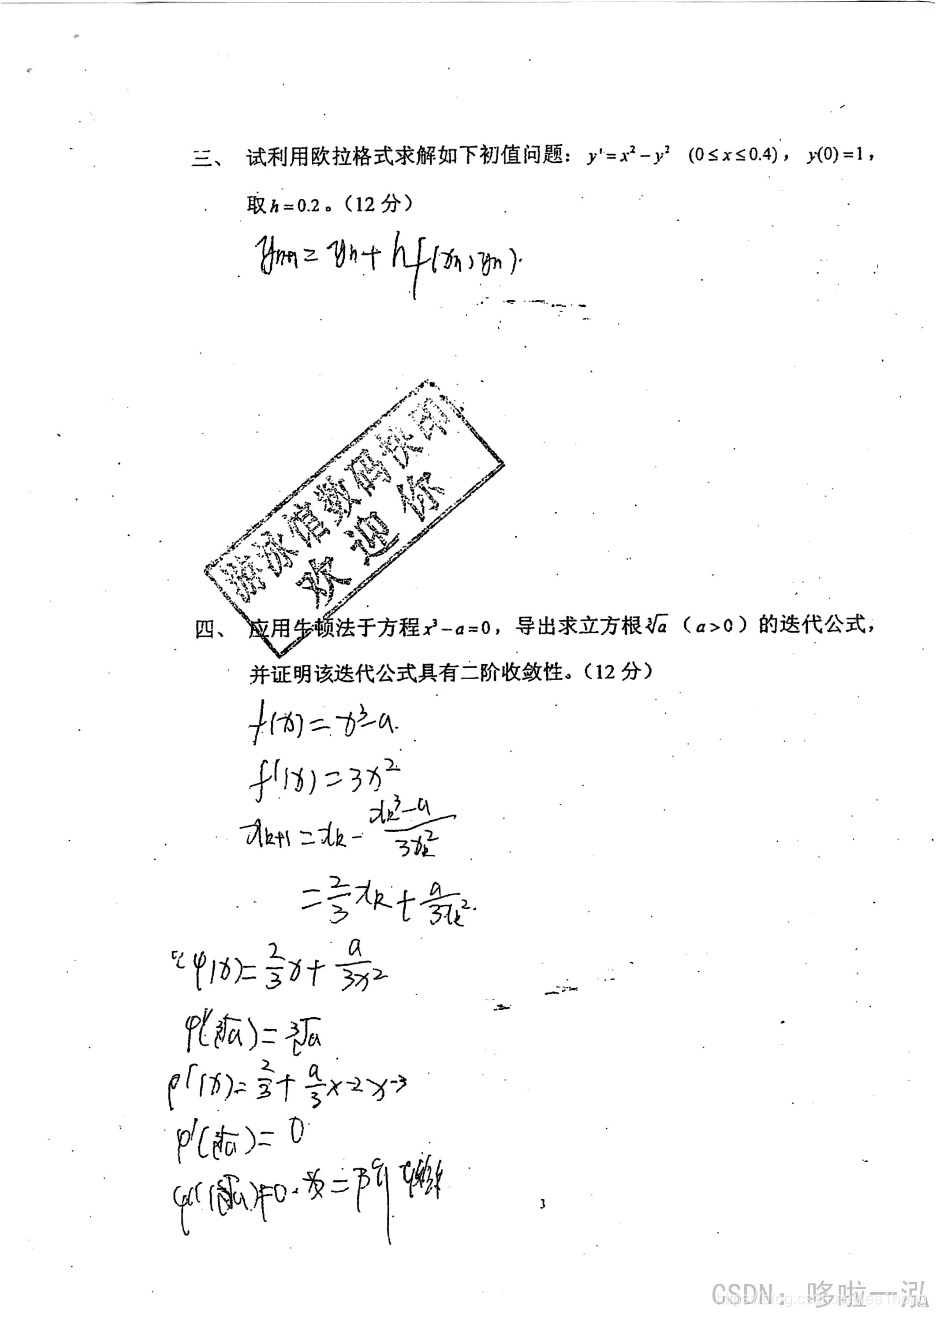 三、 试利用欧拉格式求解如下初值问题：y'=x²−y² (0≤x≤0.4)， y(0)=1，
取h=0.2。（12 分）
yₙ₊₁=yₙ+hf(xₙ,yₙ).
游泳馆数码快印
欢迎你
四、 应用牛顿法于方程x³−a=0，导出求立方根∛a（a>0）的迭代公式，
并证明该迭代公式具有二阶收敛性。（12 分）
f(x)=x³−a.
f'(x)=3x²
xₖ₊₁=xₖ−(xₖ³−a)/(3xₖ²)
=2/3xₖ+a/(3xₖ²).
φ(x)=2/3x+a/(3x²)
φ(∛a)=∛a
φ'(x)=2/3+a/3×−2x⁻³
φ'(∛a)=0
φ''(∛a)≠0
3
CSDN：哆啦一泓